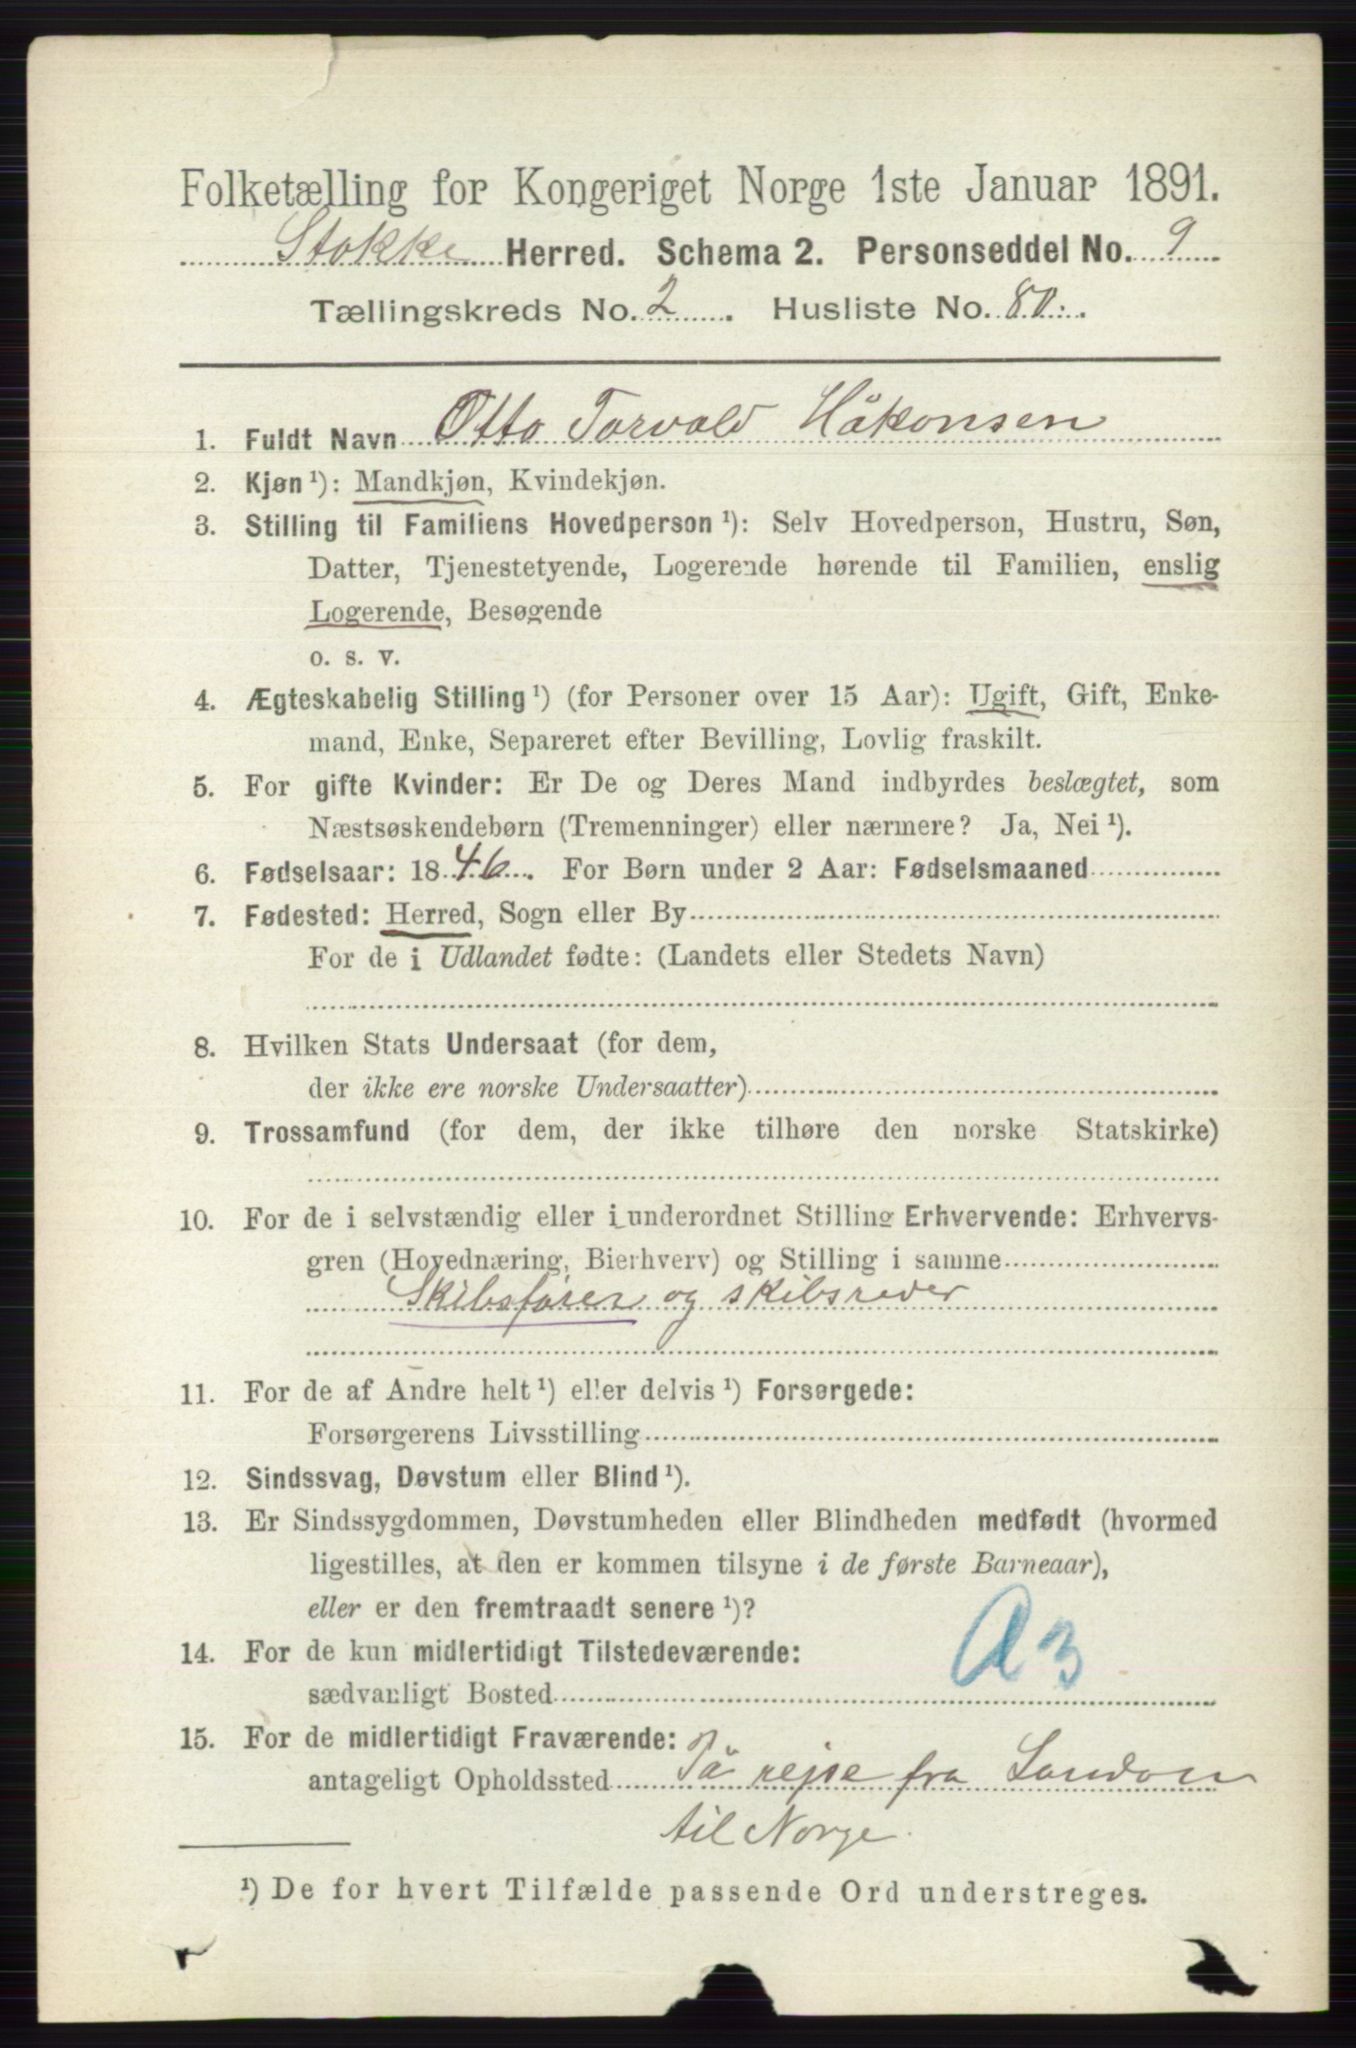 Folketælling for Kongeriget Norge 1ste Januar 1891.
Stokke Herred. Schema 2. Personseddel No. 9
Tællingskreds No. 2. Husliste No. 80.
1. Fuldt Navn Otto Torvald Håkonsen
2. Kjøn ¹): Mandkjøn, Kvindekjøn.
3. Stilling til Familiens Hovedperson ¹): Selv Hovedperson, Hustru, Søn,
Datter, Tjenestetyende, Logerende hørende til Familien, enslig
Logerende, Besøgende
o. s. v.
4. Ægteskabelig Stilling ¹) (for Personer over 15 Aar): Ugift, Gift, Enke-
mand, Enke, Separeret efter Bevilling, Lovlig fraskilt.
5. For gifte Kvinder: Er De og Deres Mand indbyrdes beslægtet, som
Næstsøskendebørn (Tremenninger) eller nærmere? Ja, Nei ¹).
6. Fødselsaar: 1846. For Børn under 2 Aar: Fødselsmaaned
7. Fødested: Herred, Sogn eller By
For de i Udlandet fødte: (Landets eller Stedets Navn)
8. Hvilken Stats Undersaat (for dem,
der ikke ere norske Undersaatter)
9. Trossamfund (for dem, der ikke tilhøre den norske Statskirke)
10. For de i selvstændig eller i underordnet Stilling Erhvervende: Erhvervs-
gren (Hovednæring, Bierhverv) og Stilling i samme
Skibsfører og skibsreder
11. For de af Andre helt ¹) eller delvis ¹) Forsørgede:
Forsørgerens Livsstilling
12. Sindssvag, Døvstum eller Blind ¹).
13. Er Sindssygdommen, Døvstumheden eller Blindheden medfødt (hvormed
ligestilles, at den er kommen tilsyne i de første Barneaar),
eller er den fremtraadt senere ¹)?
14. For de kun midlertidigt Tilstedeværende:
sædvanligt Bosted
A3
15. For de midlertidigt Fraværende:
antageligt Opholdssted På rejse fra London
til Norge.
¹) De for hvert Tilfælde passende Ord understreges.